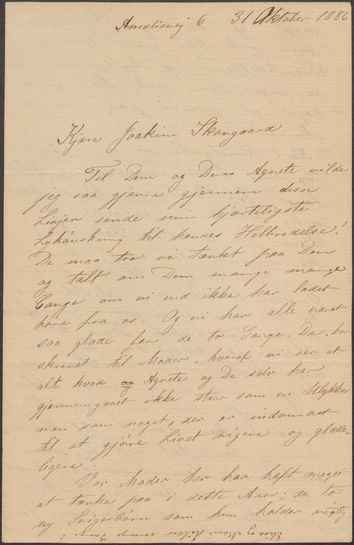 Amalievej 6 31 Oktober 1886
Kjære Joakim Skovgaard
Til Dem og Deres Agnete vilde
jeg saa gjerne gjennem disse
Linjer sende min hjerteligste
Lykønskning til hendes Helbredelse!
De maa tro vi tænket paa Dem
og talt om Dem mange mange
Gange om vi end ikke har ladet
høre fra os. Og vi har alle været
saa glade for de to Breve De har
skrevet til Moder, hvoraf vi ser at
alt hvad og Agnete og De selv har
gjennemgaaet ikke staar som en Ulykke
men som noget, der er
til at gjøre Livet rigere og glæde-
ligere.
For Moder her har haft meget
at tænke paa i dette Aar: de to
ny Svigerbørn som hun holder